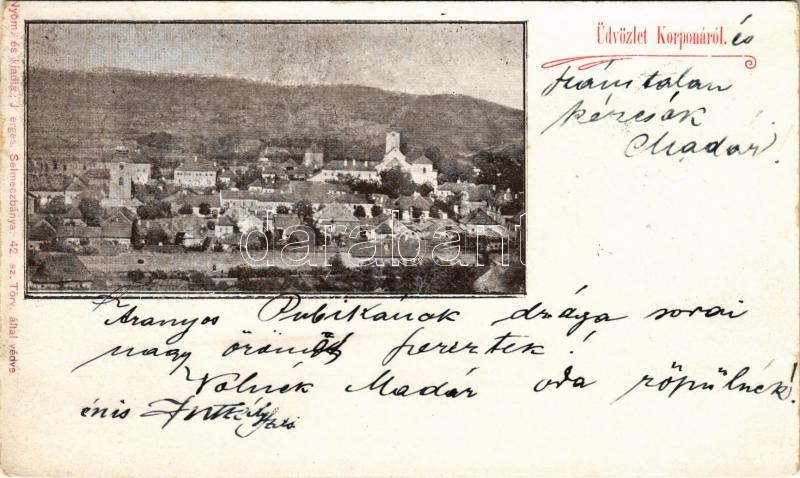 Üdvözlet Korponáról. és
számtalan
kézcsók
Madár.
Nyom. és kiadja: Joerges, Selmeczbánya. 42. sz. Törv. által védve.
darabanth
Aranyos Pubikának drága sorai
nagy örömöt szereztek!
Volnék Madár oda röpülnék!
énis